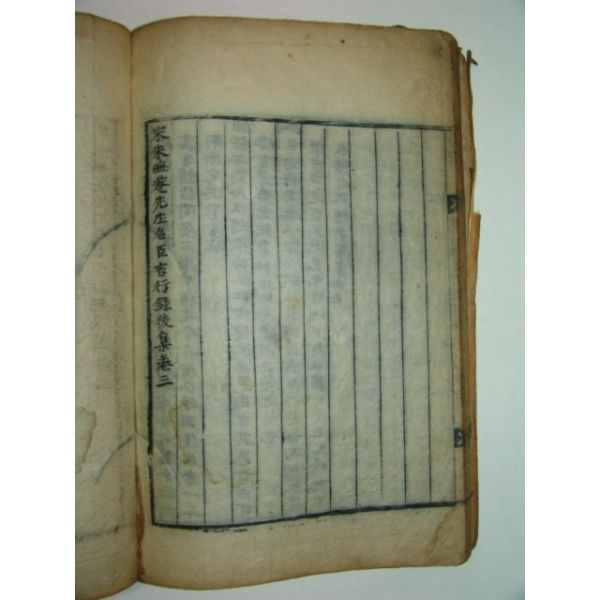 宋朱晦菴先生名臣言行錄後集卷三